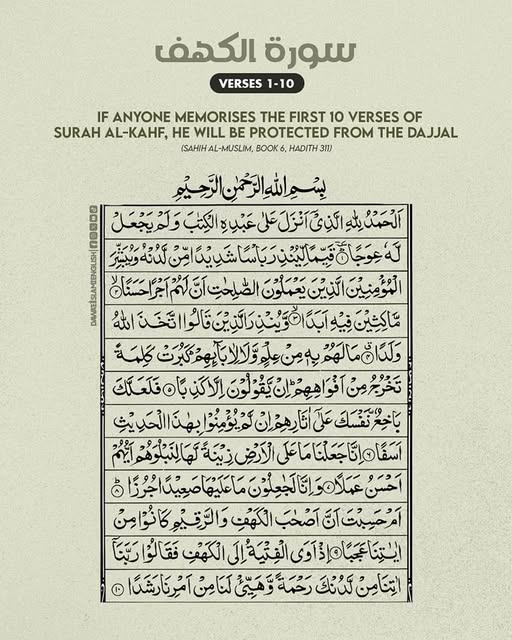 سورة الكهف
VERSES 1-10
IF ANYONE MEMORISES THE FIRST 10 VERSES OF
SURAH AL-KAHF, HE WILL BE PROTECTED FROM THE DAJJAL
(SAHIH AL-MUSLIM, BOOK 6, HADITH 311)
بِسْمِ اللهِ الرَّحْمٰنِ الرَّحِيْمِ
اَلْحَمْدُ لِلّٰهِ الَّذِیْۤ اَنْزَلَ عَلٰی عَبْدِهِ الْكِتٰبَ وَ لَمْ یَجْعَلْ
لَّهٗ عِوَجًا ﴿۱﴾ قَیِّمًا لِّیُنْذِرَ بَاْسًا شَدِیْدًا مِّنْ لَّدُنْهُ وَ یُبَشِّرَ
الْمُؤْمِنِیْنَ الَّذِیْنَ یَعْمَلُوْنَ الصّٰلِحٰتِ اَنَّ لَهُمْ اَجْرًا حَسَنًا ﴿۲﴾
مَّاكِثِیْنَ فِیْهِ اَبَدًا ﴿۳﴾ وَّ یُنْذِرَ الَّذِیْنَ قَالُوا اتَّخَذَ اللهُ
وَلَدًا ﴿۴﴾ مَا لَهُمْ بِهٖ مِنْ عِلْمٍ وَّ لَا لِاٰبَآىِٕهِمْ ؕ كَبُرَتْ كَلِمَةً
تَخْرُجُ مِنْ اَفْوَاهِهِمْ ؕ اِنْ یَّقُوْلُوْنَ اِلَّا كَذِبًا ﴿۵﴾ فَلَعَلَّكَ
بَاخِعٌ نَّفْسَكَ عَلٰۤی اٰثَارِهِمْ اِنْ لَّمْ یُؤْمِنُوْا بِهٰذَا الْحَدِیْثِ
اَسَفًا ﴿۶﴾ اِنَّا جَعَلْنَا مَا عَلَی الْاَرْضِ زِیْنَةً لَّهَا لِنَبْلُوَهُمْ اَیُّهُمْ
اَحْسَنُ عَمَلًا ﴿۷﴾ وَ اِنَّا لَجٰعِلُوْنَ مَا عَلَیْهَا صَعِیْدًا جُرُزًا ﴿۸﴾
اَمْ حَسِبْتَ اَنَّ اَصْحٰبَ الْكَهْفِ وَ الرَّقِیْمِ كَانُوْا مِنْ
اٰیٰتِنَا عَجَبًا ﴿۹﴾ اِذْ اَوَی الْفِتْیَةُ اِلَی الْكَهْفِ فَقَالُوْا رَبَّنَاۤ
اٰتِنَا مِنْ لَّدُنْكَ رَحْمَةً وَّ هَیِّئْ لَنَا مِنْ اَمْرِنَا رَشَدًا ﴿۱۰﴾